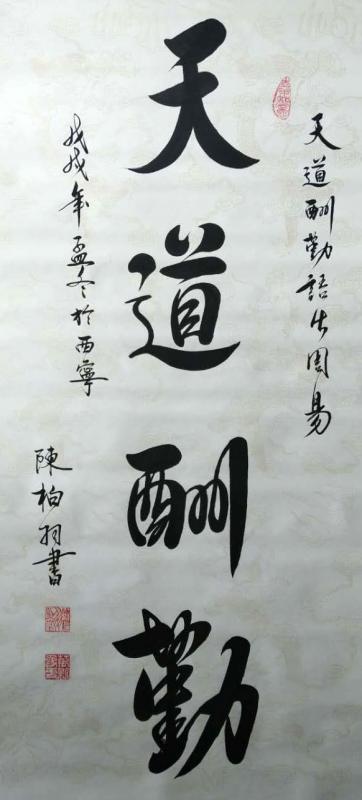 天道酬勤語出周易
天道酬勤
戊戌年孟冬於西寧
陳柏書